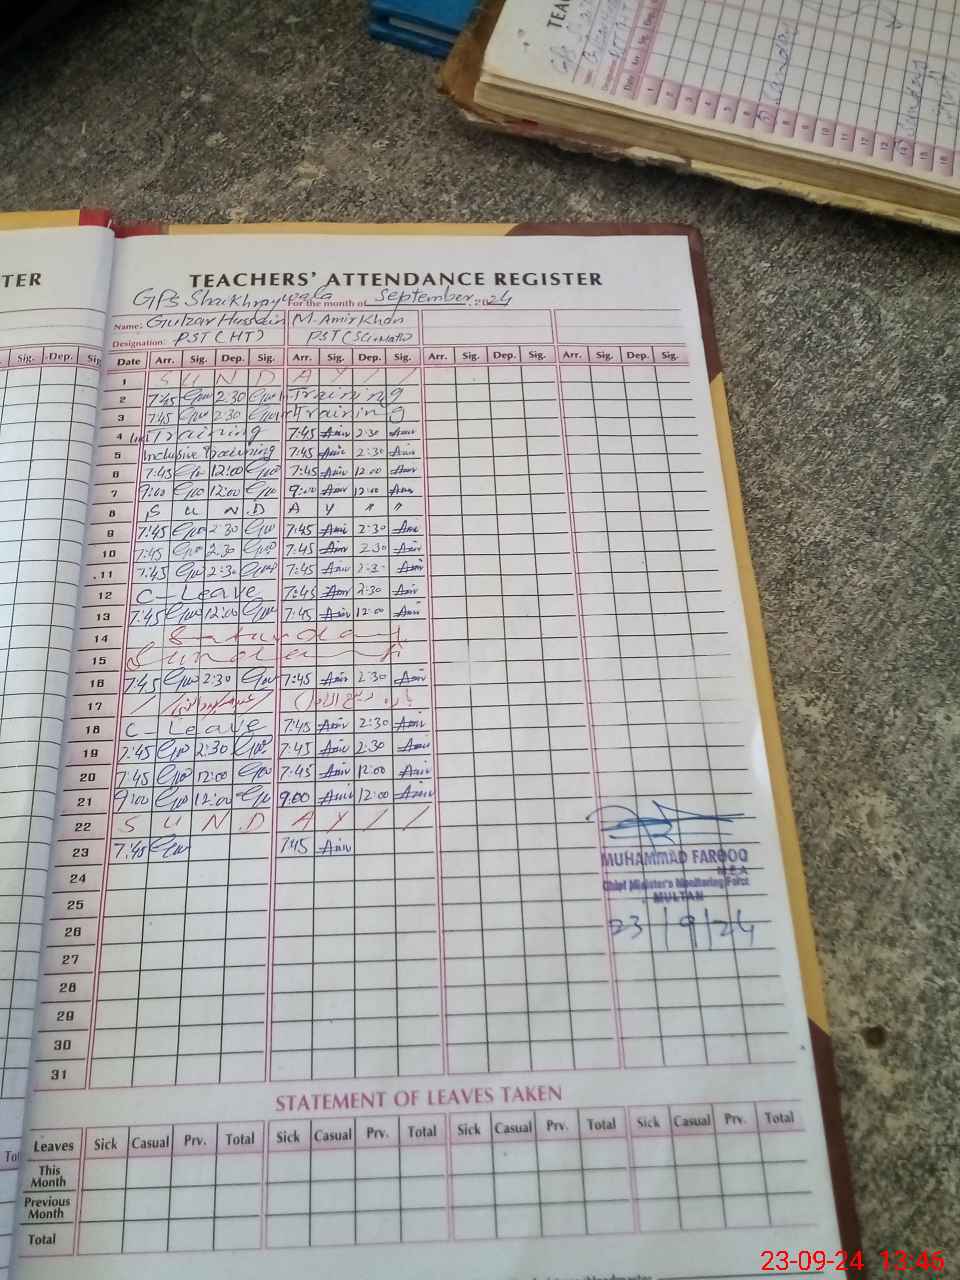 TER
TEACHERS' ATTENDANCE REGISTER
GPS Shaikhraywala For the month of September 2024
Name: Gulzar Hussain M. Amir Khan
Designation: PST (HT) PST (Sci-Math)
Sig. Dep. Sig Date Arr. Sig. Dep. Sig. Arr. Sig. Dep. Sig. Arr. Sig. Dep. Sig. Arr. Sig. Dep. Sig.
1 S U N D A Y / /
2 7:45 2:30 Training
3 7:45 2:30 Training
4 Training 7:45 Amir 2:30 Amir
5 Inclusive Training 7:45 Amir 2:30 Amir
6 7:45 12:00 7:45 Amir 12:00 Amir
7 9:00 12:00 9:00 Amir 12:00 Amir
8 S U N D A Y " "
9 7:45 2:30 7:45 Amir 2:30 Amir
10 7:45 2:30 7:45 Amir 2:30 Amir
11 7:45 2:30 7:45 Amir 2:30 Amir
12 C-Leave 7:45 Amir 2:30 Amir
13 7:45 12:00 7:45 Amir 12:00 Amir
14 Saturday
15 Sunday
16 7:45 2:30 7:45 Amir 2:30 Amir
17
18 C-Leave 7:45 Amir 2:30 Amir
19 7:45 2:30 7:45 Amir 2:30 Amir
20 7:45 12:00 7:45 Amir 12:00 Amir
21 9:00 12:00 9:00 Amir 12:00 Amir
22 S U N D A Y / /
23 7:45 7:45 Amir
24
25
26
27
28
29
30
31
MUHAMMAD FAROOQ
M.E.A
Chief Minister's Monitoring Force
MULTAN
23/9/24
STATEMENT OF LEAVES TAKEN
Leaves Sick Casual Prv. Total Sick Casual Prv. Total Sick Casual Prv. Total Sick Casual Prv. Total
This Month
Previous Month
Total
23-09-24 13:46